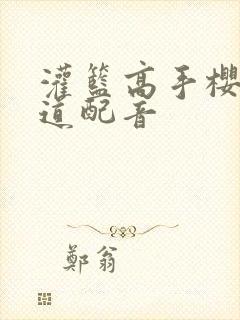 灌籃高手櫻
道配音
鄭翁